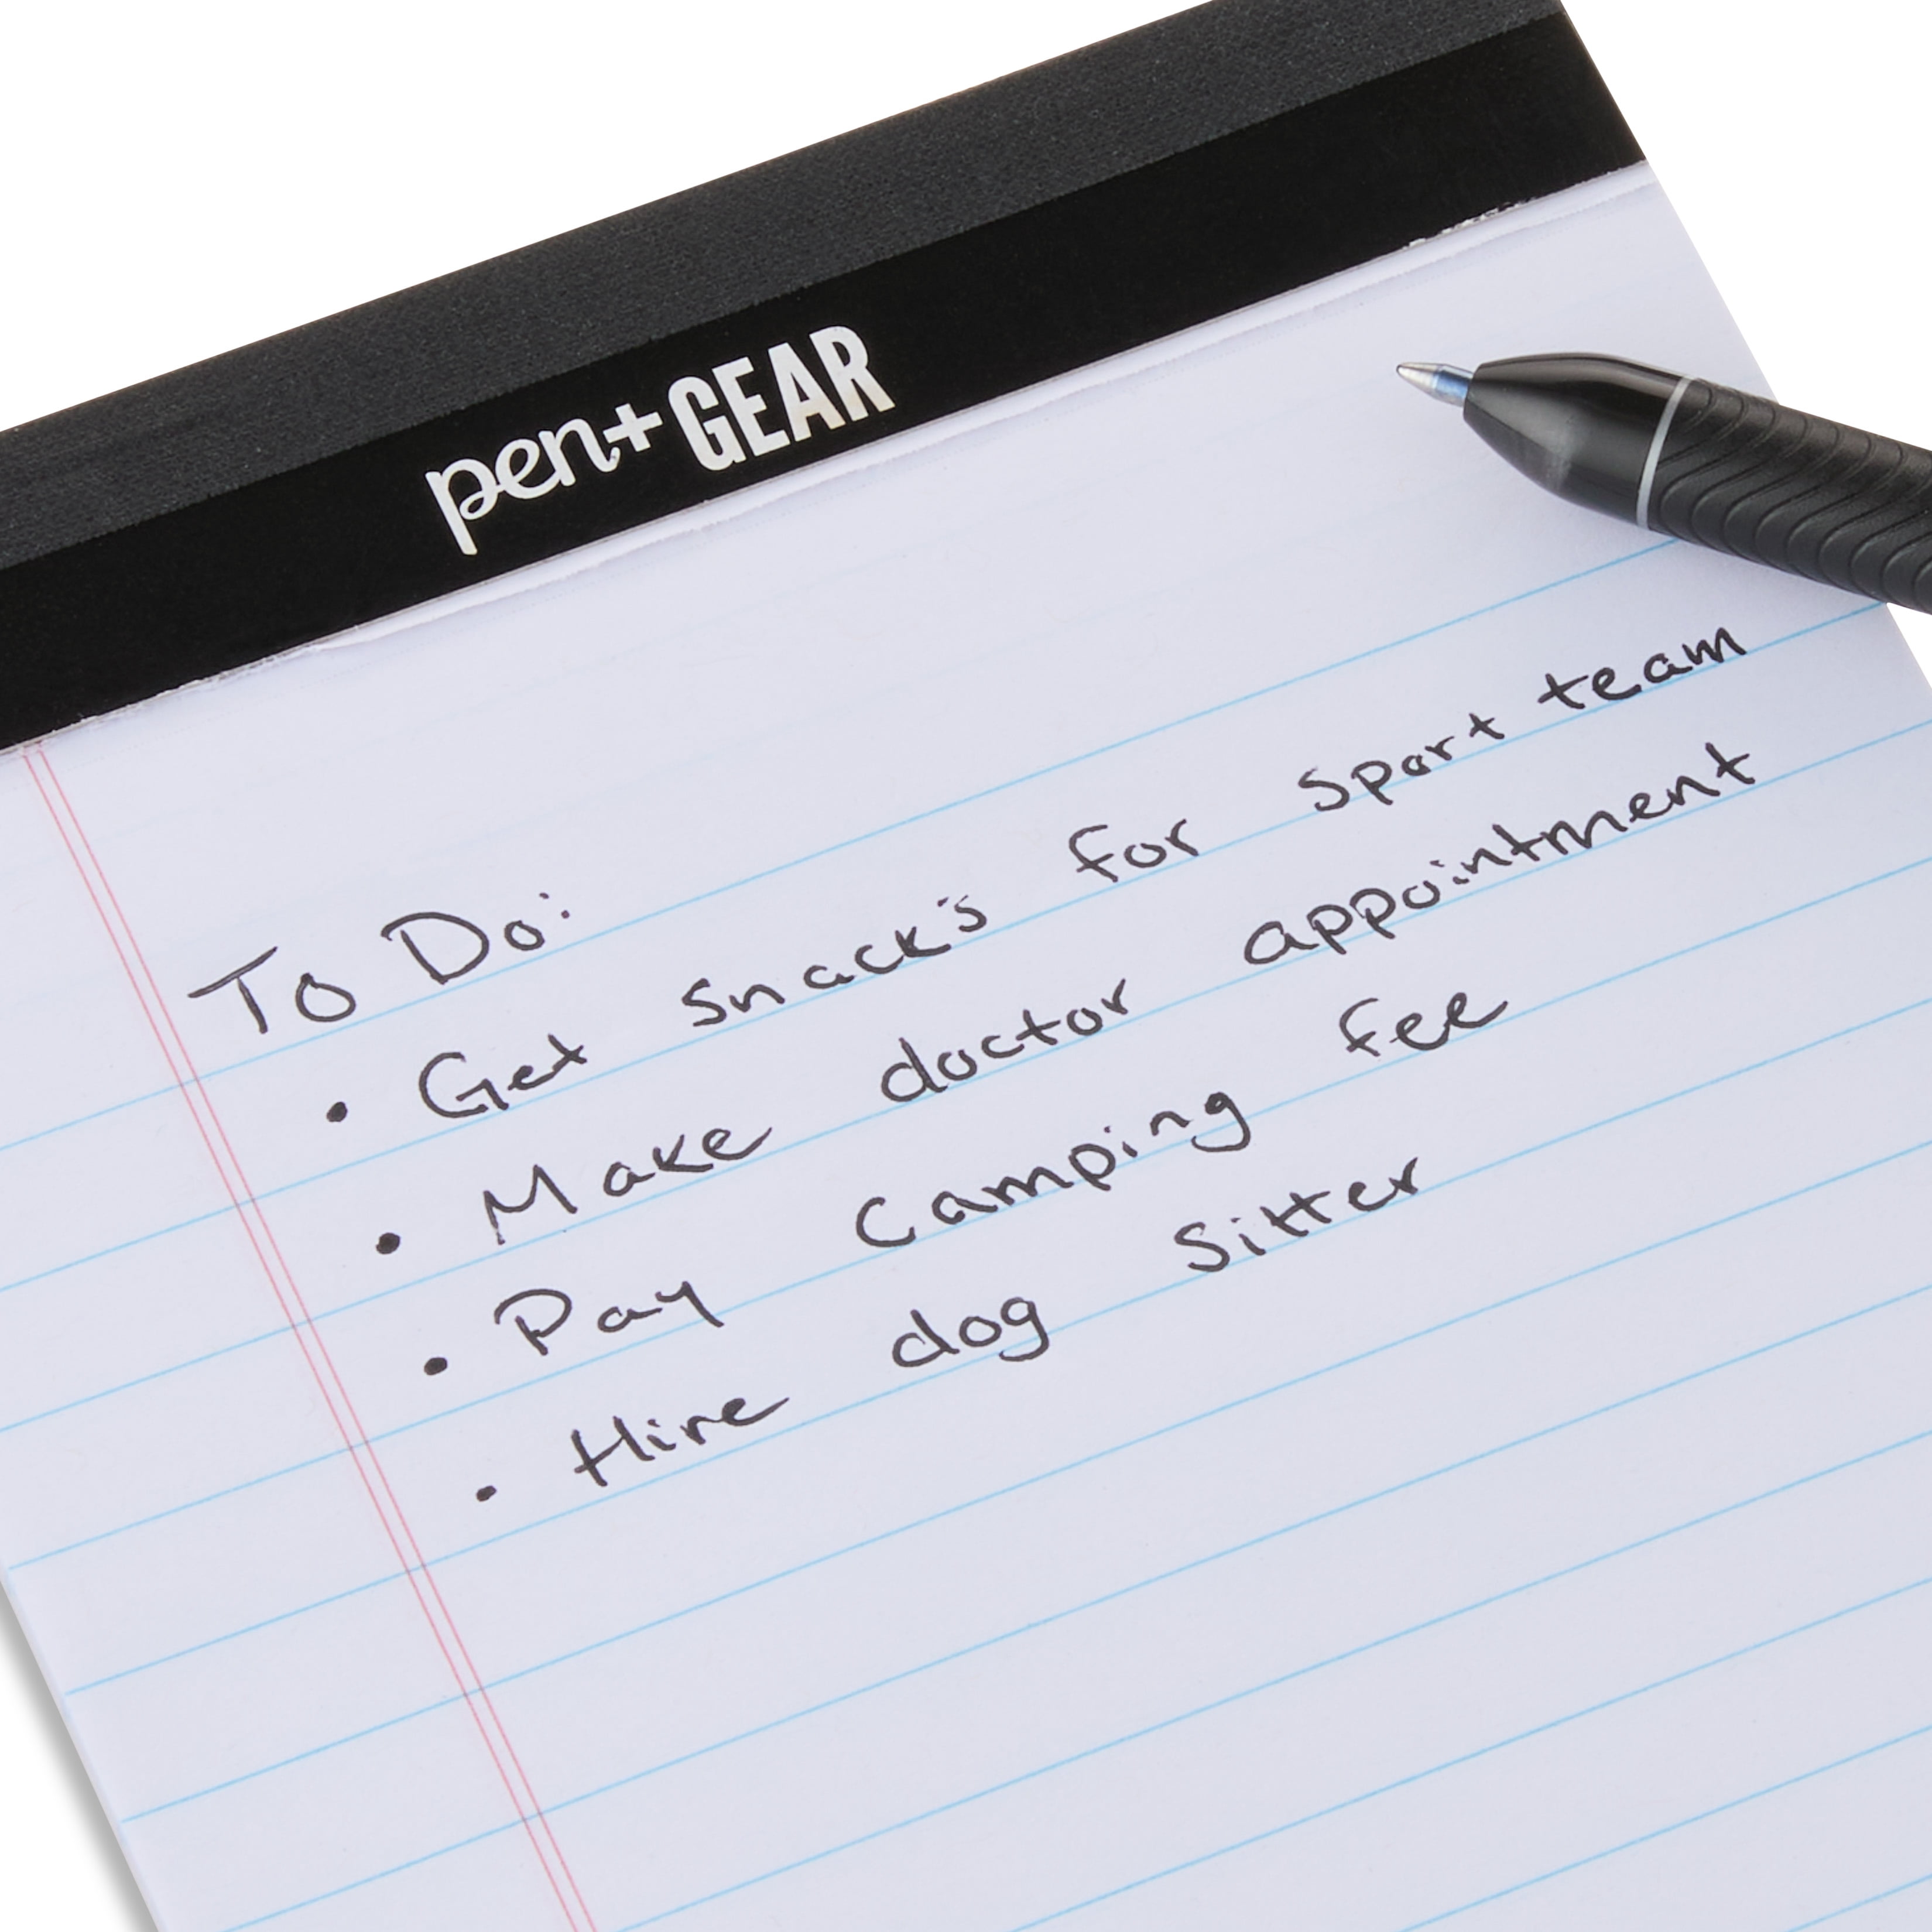 pen+GEAR
To Do:
• Get snack's for sport team
• Make doctor appointment
• Pay camping fee
• Hire dog sitter